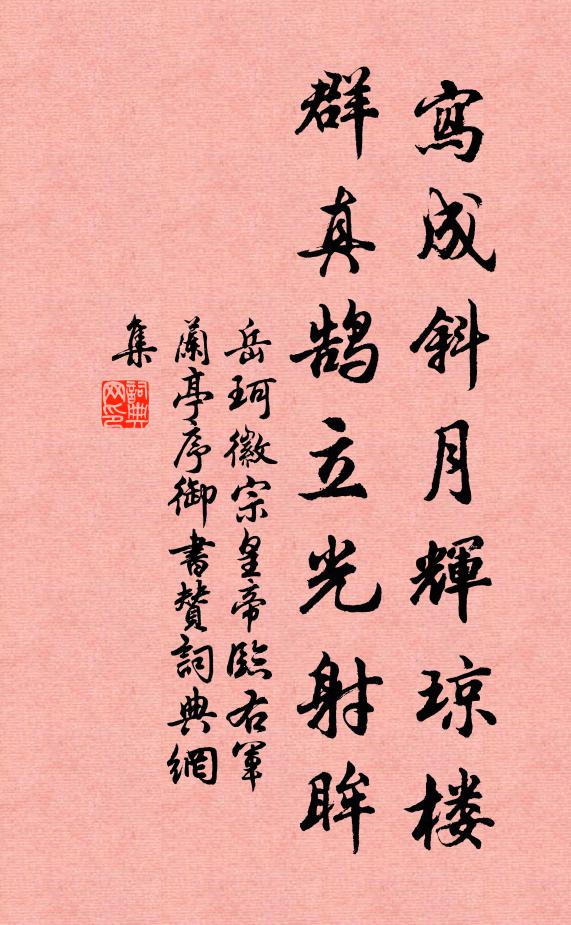 寫成斜月輝琼楼
群真鹄立光射眸
岳珂徽宗皇帝臨右軍
蘭亭序御書贊詞典網
集
詞典
网印